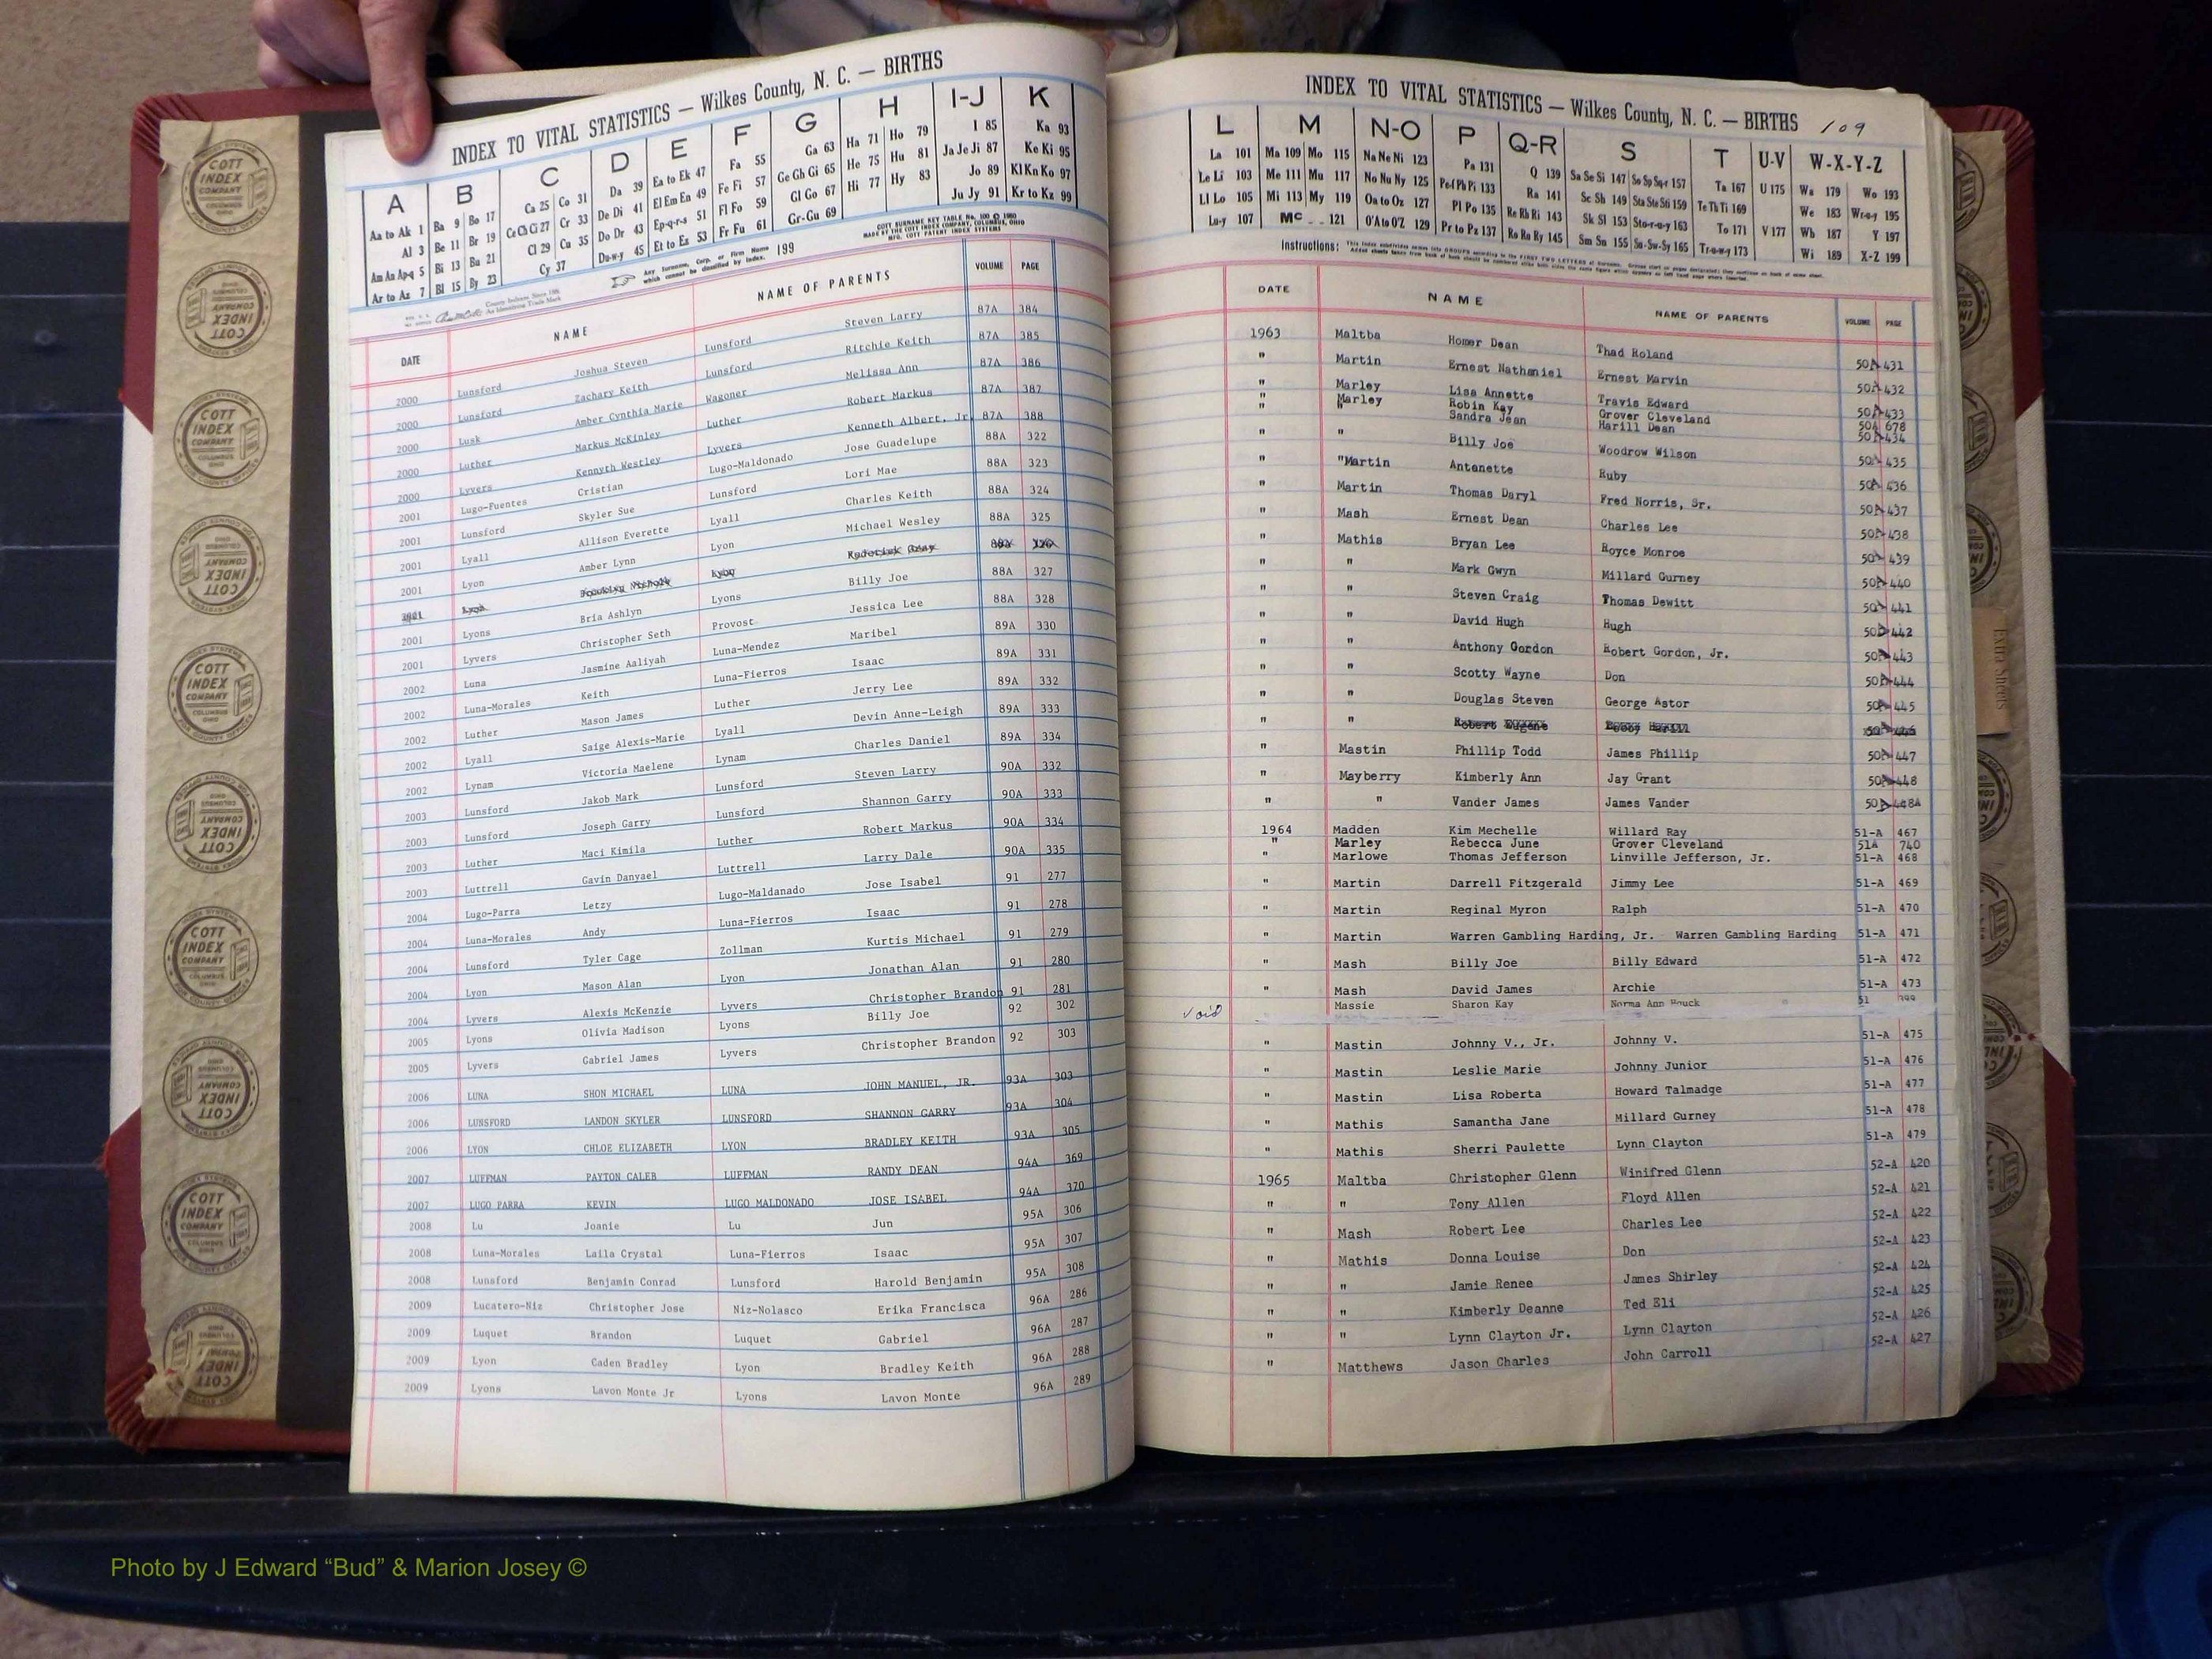 INDEX TO VITAL STATISTICS — Wilkes County, N. C. — BIRTHS
A B C D E F G H I-J K
Aa to Ak 1 Ba 9 Bo 17 Ca 25 Co 31 Da 39 Ea to Ek 47 Fa 55 Ga 63 Ha 71 Ho 79 I 85 Ka 93
Al 3 Be 11 Br 19 Ce Ch Ci 27 Cr 33 De Di 41 El Em En 49 Fe Fi 57 Ge Gh Gi 65 He 75 Hu 81 Ja Je Ji 87 Ke Ki 95
Am An Ap-q 5 Bi 13 Bu 21 Cl 29 Cu 35 Do Dr 43 Ep-q-r-s 51 Fl Fo 59 Gl Go 67 Hi 77 Hy 83 Jo 89 Kl Kn Ko 97
Ar to Az 7 Bl 15 By 23 Cy 37 Du-w-y 45 Et to Ez 53 Fr Fu 61 Gr-Gu 69 Ju Jy 91 Kr to Kz 99
Any Surname, Corp. or Firm Name which cannot be classified by index. 199
COTT SURNAME KEY TABLE No. 100 © 1960
MADE BY THE COTT INDEX COMPANY, COLUMBUS, OHIO
MFG. COTT PATENT INDEX SYSTEMS
DATE NAME NAME OF PARENTS VOLUME PAGE
2000 Lunsford Joshua Steven Lunsford Steven Larry 87A 384
2000 Lunsford Zachary Keith Lunsford Ritchie Keith 87A 385
2000 Lusk Amber Cynthia Marie Wagoner Melissa Ann 87A 386
2000 Luther Markus McKinley Luther Robert Markus 87A 387
Lyvers Kennyth Westley Lyvers Kenneth Albert, Jr. 87A 388
2001 Lugo-Fuentes Cristian Lugo-Maldonado Jose Guadelupe 88A 322
2001 Lunsford Skyler Sue Lunsford Lori Mae 88A 323
2001 Lyall Allison Everette Lyall Charles Keith 88A 324
2001 Lyon Amber Lynn Lyon Michael Wesley 88A 325
2001 Lyon Lyon
2001 Lyons Bria Ashlyn Lyons Billy Joe 88A 327
2001 Lyvers Christopher Seth Provost Jessica Lee 88A 328
2002 Luna Jasmine Aaliyah Luna-Mendez Maribel 89A 330
2002 Luna-Morales Keith Luna-Fierros Isaac 89A 331
2002 Luther Mason James Luther Jerry Lee 89A 332
2002 Lyall Saige Alexis-Marie Lyall Devin Anne-Leigh 89A 333
2002 Lynam Victoria Maelene Lynam Charles Daniel 89A 334
2003 Lunsford Jakob Mark Lunsford Steven Larry 90A 332
2003 Lunsford Joseph Garry Lunsford Shannon Garry 90A 333
2003 Luther Maci Kimila Luther Robert Markus 90A 334
2003 Luttrell Gavin Danyael Luttrell Larry Dale 90A 335
2004 Lugo-Parra Letzy Lugo-Maldanado Jose Isabel 91 277
2004 Luna-Morales Andy Luna-Fierros Isaac 91 278
2004 Lunsford Tyler Cage Zollman Kurtis Michael 91 279
2004 Lyon Mason Alan Lyon Jonathan Alan 91 280
2004 Lyvers Alexis McKenzie Lyvers Christopher Brandon 91 281
2005 Lyons Olivia Madison Lyons Billy Joe 92 302
2005 Lyvers Gabriel James Lyvers Christopher Brandon 92 303
2006 LUNA SHON MICHAEL LUNA JOHN MANUEL, JR. 93A 303
2006 LUNSFORD LANDON SKYLER LUNSFORD SHANNON GARRY 93A 304
2006 LYON CHLOE ELIZABETH LYON BRADLEY KEITH 93A 305
2007 LUFFMAN PAYTON CALEB LUFFMAN RANDY DEAN 94A 369
2007 LUGO PARRA KEVIN LUGO MALDONADO JOSE ISABEL 94A 370
2008 Lu Joanie Lu Jun 95A 306
2008 Luna-Morales Laila Crystal Luna-Fierros Isaac 95A 307
2008 Lunsford Benjamin Conrad Lunsford Harold Benjamin 95A 308
2009 Lucatero-Niz Christopher Jose Niz-Nolasco Erika Francisca 96A 286
2009 Luquet Brandon Luquet Gabriel 96A 287
2009 Lyon Caden Bradley Lyon Bradley Keith 96A 288
2009 Lyons Lavon Monte Jr Lyons Lavon Monte 96A 289
INDEX TO VITAL STATISTICS — Wilkes County, N. C. — BIRTHS 109
L M N-O P Q-R S T U-V W-X-Y-Z
La 101 Ma 109 Mo 115 Na Ne Ni 123 Pa 131 Q 139 Sa Se Si 147 So Sp Sq-r 157 Ta 167 U 175 Wa 179 Wo 193
Le Li 103 Me 111 Mu 117 No Nu Ny 125 Pe-f Ph Pi 133 Ra 141 Sc Sh 149 Sta Ste Sti 159 Te Th Ti 169 We 183 Wr-u-y 195
Ll Lo 105 Mi 113 My 119 Oa to Oz 127 Pl Po 135 Re Rh Ri 143 Sk Sl 153 Sto-r-u-y 163 To 171 V 177 Wh 187 Y 197
Lu-y 107 Mc 121 O'A to O'Z 129 Pr to Pz 137 Ro Ru Ry 145 Sm Sn 155 Su-Sw-Sy 165 Tr-u-w-y 173 Wi 189 X-Z 199
Instructions:
DATE NAME NAME OF PARENTS VOLUME PAGE
1963 Maltba Homer Dean Thad Roland 50A 431
" Martin Ernest Nathaniel Ernest Marvin 50A 432
" Marley Lisa Annette Travis Edward 50A 433
" Marley Robin Kay Grover Cleveland 50A 678
" " Sandra Jean Harill Dean 50A 434
" " Billy Joe Woodrow Wilson 50A 435
" "Martin Antanette Ruby 50A 436
" Martin Thomas Daryl Fred Norris, Sr. 50A 437
" Mash Ernest Dean Charles Lee 50A 438
" Mathis Bryan Lee Royce Monroe 50A 439
" " Mark Gwyn Millard Gurney 50A 440
" " Steven Craig Thomas Dewitt 50A 441
" " David Hugh Hugh 50A 442
" " Anthony Gordon Robert Gordon, Jr. 50A 443
" " Scotty Wayne Don 50A 444
" " Douglas Steven George Astor 50A 445
" " Robert Eugene
" Mastin Phillip Todd James Phillip 50A 447
" Mayberry Kimberly Ann Jay Grant 50A 448
" " Vander James James Vander 50A 448A
1964 Madden Kim Mechelle Willard Ray 51-A 467
" Marley Rebecca June Grover Cleveland 51A 740
" Marlowe Thomas Jefferson Linville Jefferson, Jr. 51-A 468
" Martin Darrell Fitzgerald Jimmy Lee 51-A 469
" Martin Reginal Myron Ralph 51-A 470
" Martin Warren Gambling Harding, Jr. Warren Gambling Harding 51-A 471
" Mash Billy Joe Billy Edward 51-A 472
" Mash David James Archie 51-A 473
void Massie Sharon Kay Norma Ann Houck 51
" Mastin Johnny V., Jr. Johnny V. 51-A 475
" Mastin Leslie Marie Johnny Junior 51-A 476
" Mastin Lisa Roberta Howard Talmadge 51-A 477
" Mathis Samantha Jane Millard Gurney 51-A 478
" Mathis Sherri Paulette Lynn Clayton 51-A 479
1965 Maltba Christopher Glenn Winifred Glenn 52-A 420
" " Tony Allen Floyd Allen 52-A 421
" Mash Robert Lee Charles Lee 52-A 422
" Mathis Donna Louise Don 52-A 423
" " Jamie Renee James Shirley 52-A 424
" " Kimberly Deanne Ted Eli 52-A 425
" " Lynn Clayton Jr. Lynn Clayton 52-A 426
" Matthews Jason Charles John Carroll 52-A 427
Extra Sheets
COTT INDEX COMPANY
Photo by J Edward “Bud” & Marion Josey ©